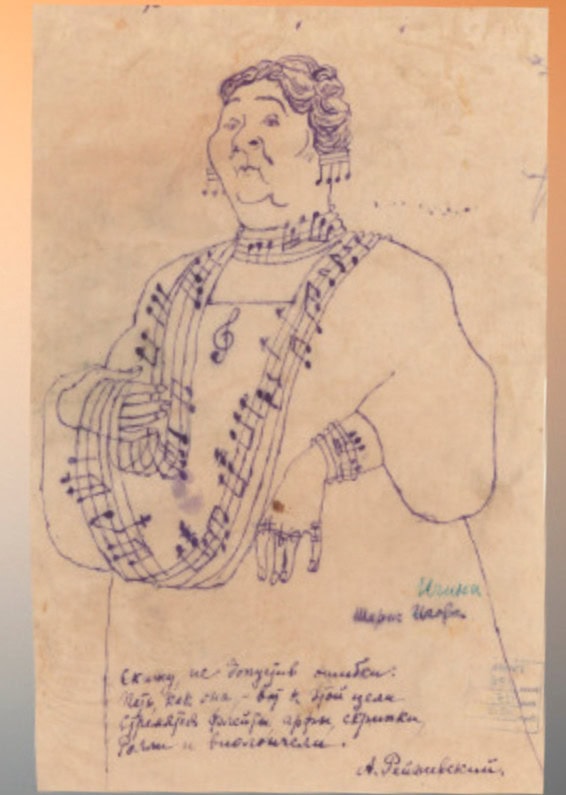 Скажу, не допустив ошибки:
Петь, как она, – вот к этой цели
Стремятся флейты, арфы, скрипки,
Рояли и виолончели.
А. Рейжевский.